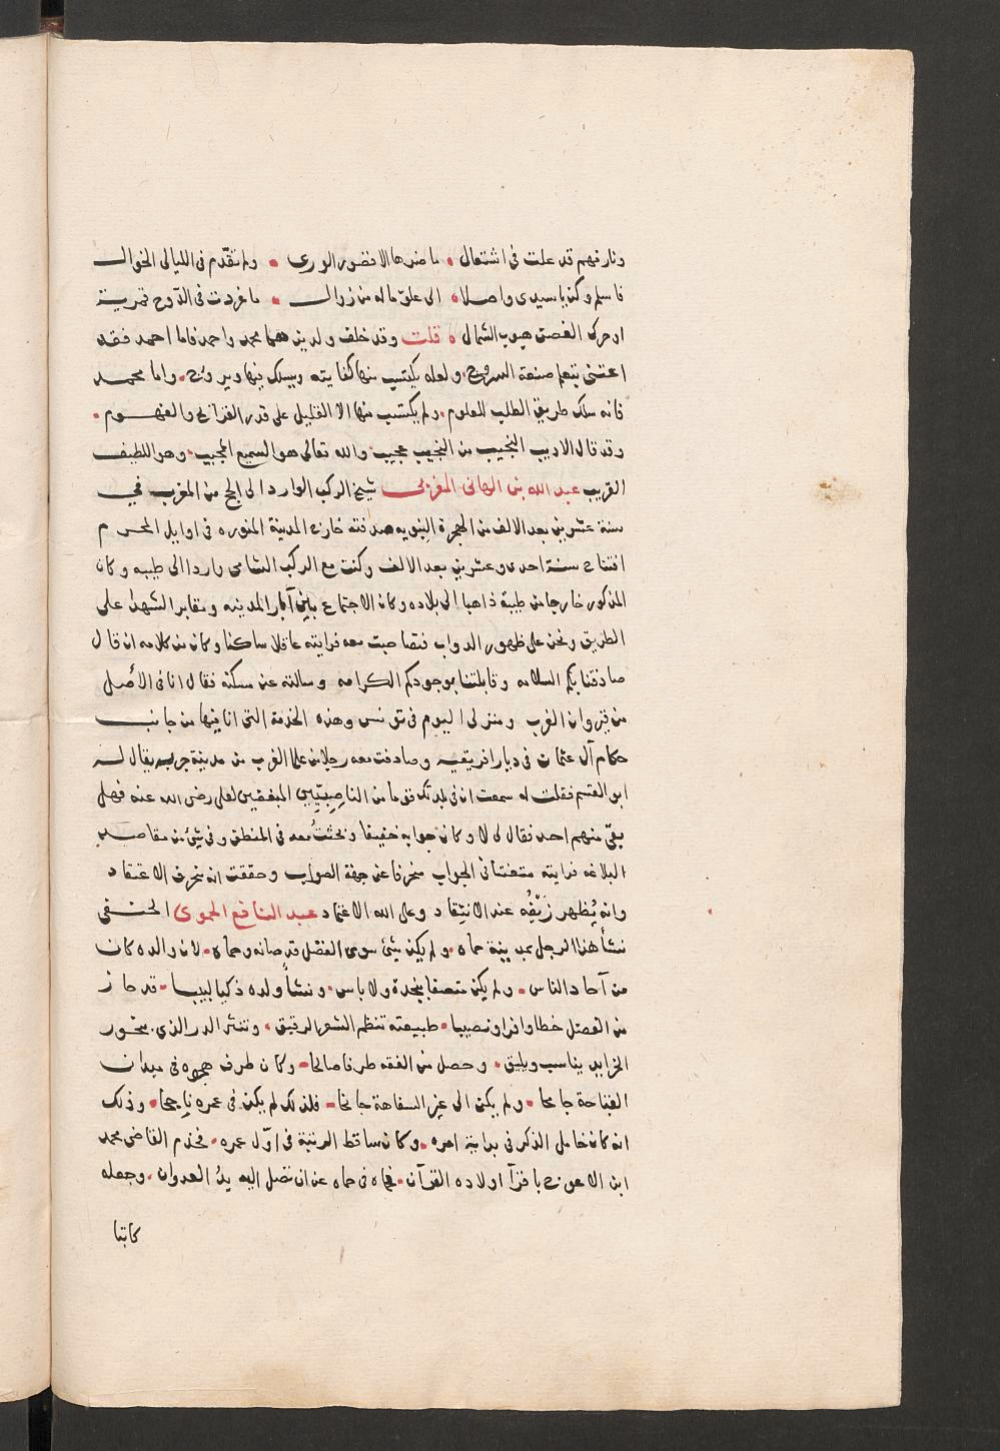 ونار فهم قد علت في اشتعال • ما ضرها الا قصور الورى • ولم تقدّم في الليالي الخوال
فاسلم وكن يا سيدي واصلا • الى علوّ ما له من زوال • ما غردت في الدّوح قمرية
او حرك الغصن هبوب الشمال • قلت وقد خلف ولدين هما محمد واحمد فاما احمد فقد
اعتنى بتعلم صنعة السروج • ولعله يكتسب منها كفايته ويسلك فيها ويروج • واما محمد
فانه سلك طريق الطلب للعلوم • ولم يكتسب منها الا القليل على قدر القرائح والفهوم •
وقد قال الاديب النجيب من النجيب عجيب • والله تعالى هو السميع المجيب • وهو اللطيف
القريب عبد الله بن الهاني المغربي شيخ الركب الوارد الى الحج من المغرب في
سنة عشرين بعد الالف من الهجرة النبويه صدفته خارج المدينة المنوره في اوايل المحرم
افتتاح سنة احدى وعشرين بعد الالف وكنت مع الركب الشامي واردا الى طيبه وكان
المذكور خارجا من طيبة ذاهبا الى بلاده وكان الاجتماع بين آبار المدينه ومقابر الشهدا على
الطريق ونحن على ظهور الدواب فتصاحبت معه فرايته عاقلا ساكنا وكان من كلامه ان قال
صادفتنا بكم السلامه وقابلتنا بوجودكم الكرامه وسالته عن مسكنه فقال انا في الأصل
من قيروان الغرب ومنزلي اليوم في تونس وهذه الخدمة التي انا فيها من جانب
حكام آل عثمان في ديار افريقيه وصادفت معه رجلا من علما الغرب من مدينة جربه يقال له
ابو القسم فقلت له سمعت ان في بلدتك قوما من الناصِبيّين المبغضين لعلي رضي الله عنه فهل
بقي منهم احد فقال لي لا وكان جوابه خفيفا وبحثتُ معه في المنطق وفي شئ من مقاصد
البلاغه فرايته متعنتا في الجواب منحرفا عن جهة الصواب وحققت انه منحرف الاعتقاد
وانه يُظهر زَيْفُه عند الانتقاد وعلى الله الاعتماد عبد النافع الحموي الحنفي
نشأ هذا الرجل بمدينة حماه • ولم يكن شئ سوى الفضل قد صانه وحماه • لان والده كان
من آحاد الناس • ولم يكن متصفا بنجدة ولا باس • ونشأ ولده ذكيا لبيبا • قد حاز
من الفضل حظا وافرا ونصيبا • طبيعته تنظم الشعر الرقيق • وتنثر الدر الذي بنحور
الخرايد يناسب ويليق • وحصل من الفقه طرفا صالحا • وكان طرف هجوه في ميدان
القباحة جامحا • ولم يكن الى غير السفاهة جانحا • فلذلك لم يكن في عمره ناجحا • وذلك
انه كان خامل الذكر في بداية امره • وكان ساقط الرتبة في اوّل عمره • فخدم القاضي محمد
ابن الاعوج باقرآ اولاده القرآن • فحماه في حماه عن ان تصل اليه يدُ العدوان • وجعله
كاتبا